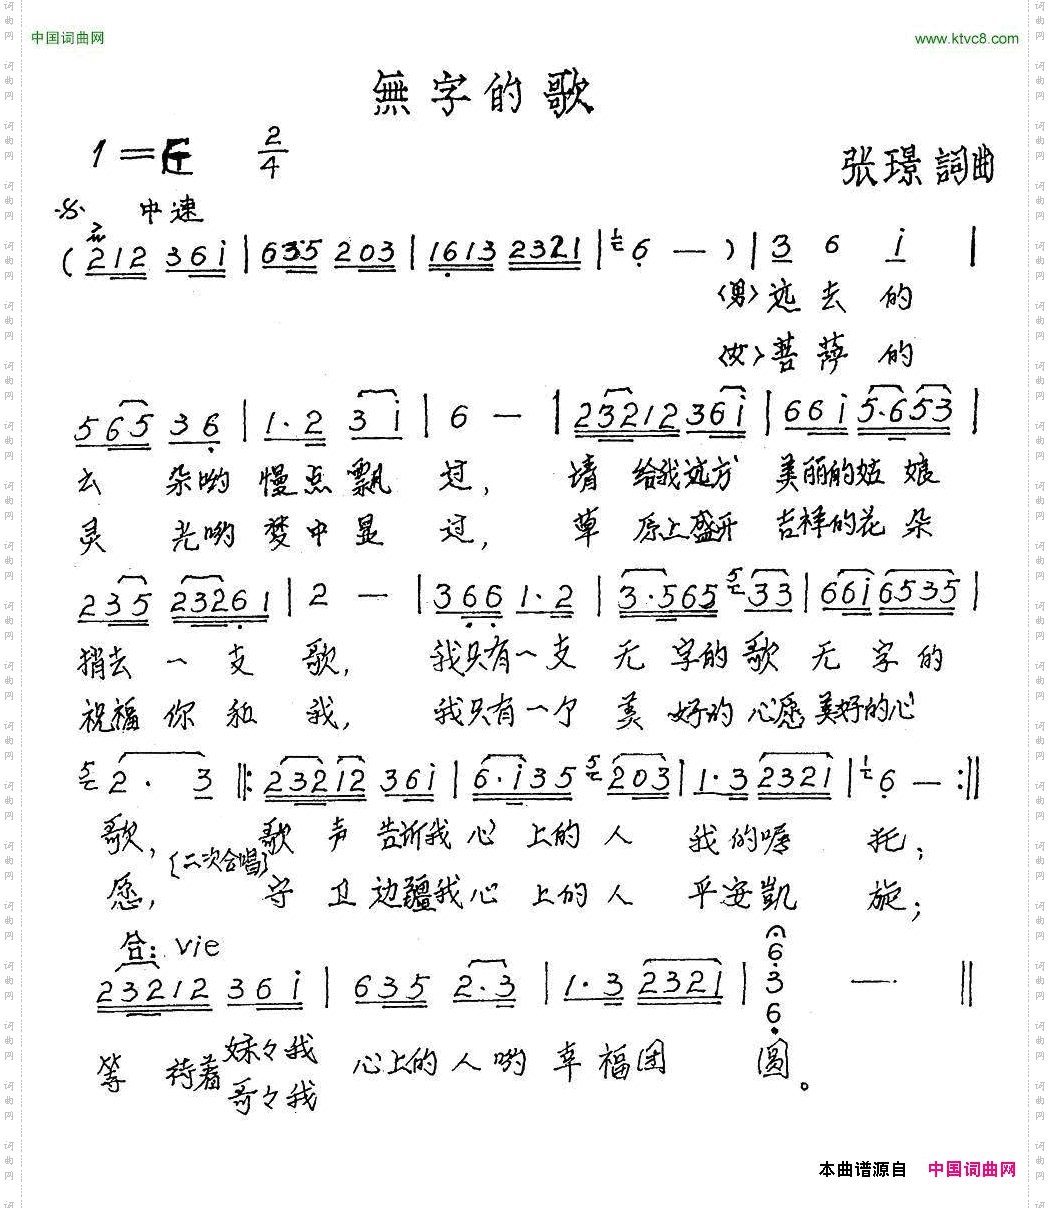 中国词曲网
www.ktvc8.com
無字的歌
1=E 2/4
张璟詞曲
中速
(212 36i | 6335 203 | 1613 2321 | 6 — ) | 3 6 i |
〈男〉逝去的
〈女〉菩萨的
565 36 | 1·2 3i | 6 — | 23212 36i | 66i 5·653 |
云朵哟慢点飘过，请给我远方美丽的姑娘
灵光哟梦中显过，草原上盛开吉祥的花朵
235 23261 | 2 — | 366 1·2 | 3·565 33 | 66i 6535 |
捎去一支歌，我只有一支无字的歌无字的
祝福你和我，我只有一个美好的心愿美好的心
2· 3 ‖: 23212 36i | 6·i35 203 | 1·3 2321 | 6 — :‖
歌，歌声告诉我心上的人我的嘱托；
〔二次合唱〕
愿，守卫边疆我心上的人平安凱旋；
合：vie
23212 36i | 635 2·3 | 1·3 2321 | 6 3 6 — ‖
等待着妹々我心上的人哟幸福团圆。
哥々我
本曲谱源自 中国词曲网